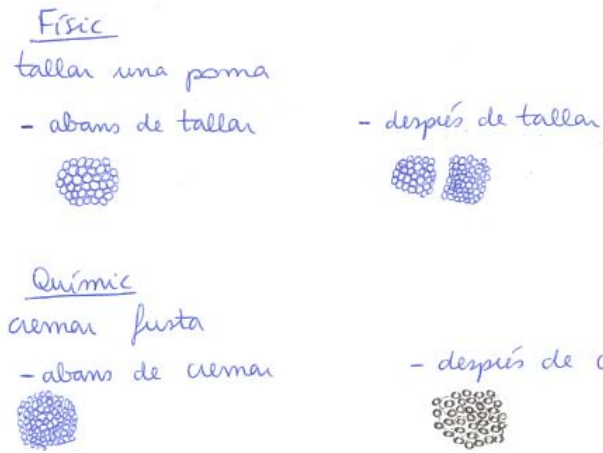 Físic
tallar una poma
- abans de tallar - després de tallar
Químic
cremar fusta
- abans de cremar - després de c